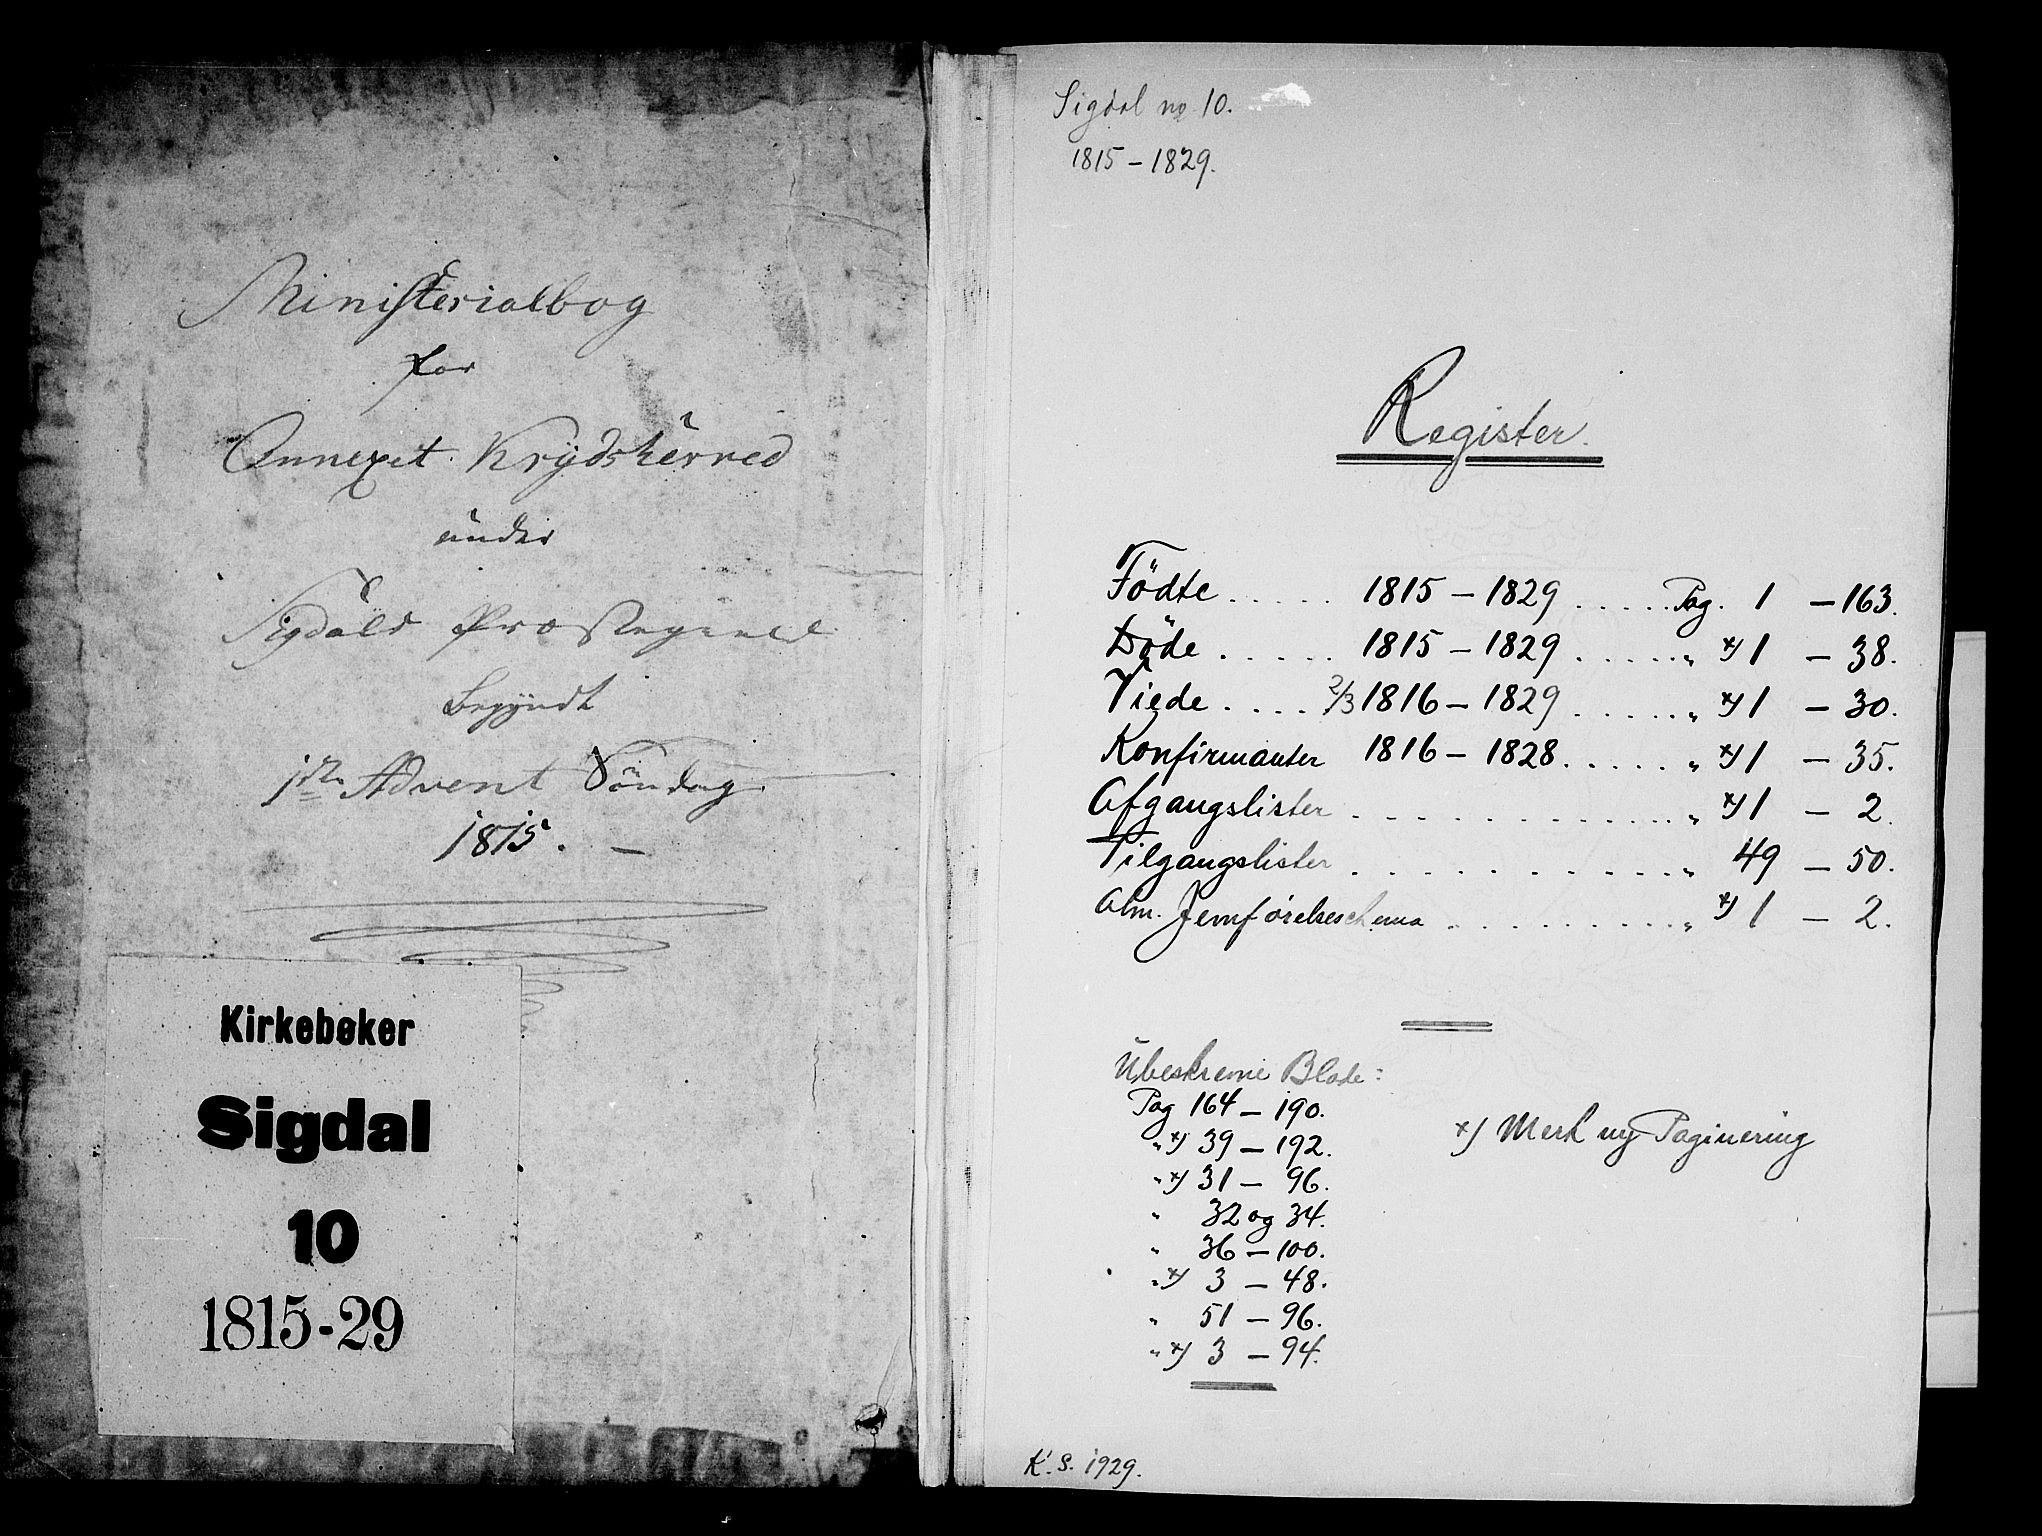 Ministerialbog
for
Annexet Krydsherred
under
Sigdals Præstegield
Begyndt
1ste Advent Söndag
1815. —
Kirkebøker
Sigdal
10
1815-29
Sigdal no 10.
1815 – 1829.
Register.
Födte . . . . . 1815 – 1829 . . . . . Pag. 1 – 163.
Döde . . . . . 1815 – 1829 . . . . . „ x) 1 – 38.
Viede . . . . 2/3 1816 – 1829 . . . . . „ x) 1 – 30.
Konfirmanter 1816 – 1828 . . . . . „ x) 1 – 35.
Afgangslister . . . . . . . . . . . . . „ x) 1 – 2.
Tilgangslister . . . . . . . . . . . . „ 49 – 50.
Alm. Jemförelsesschema . . . . . . . . . . „ x) 1 – 2.
Ubeskrevne Blade:
Pag 164 – 190.
„ x) 39 – 192.
„ x) 31 – 96.
„ 32 og 34.
„ 36 – 100.
„ x) 3 – 48.
„ 51 – 96.
„ x) 3 – 94.
x) Merk ny Paginering
K. S. 1929.